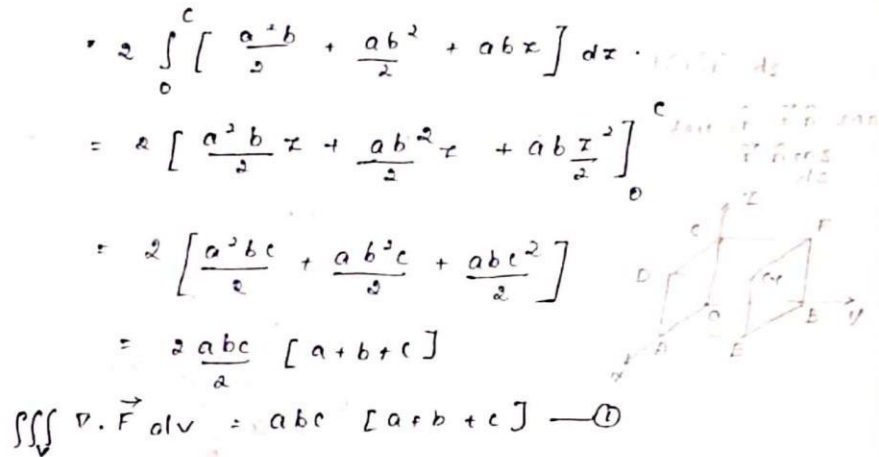 = 2 ∫₀ᶜ [ a²b/2 + ab²/2 + abz ] dz .
= 2 [ a²b/2 z + ab²/2 z + ab z²/2 ]₀ᶜ
= 2 [ a²bc/2 + ab²c/2 + abc²/2 ]
= 2 abc/2 [ a+b+c ]
∭ᵥ ∇. F⃗ dv = abc [ a+b+c ] —①
ds
ds
z
C F
D
O B y
A E
x